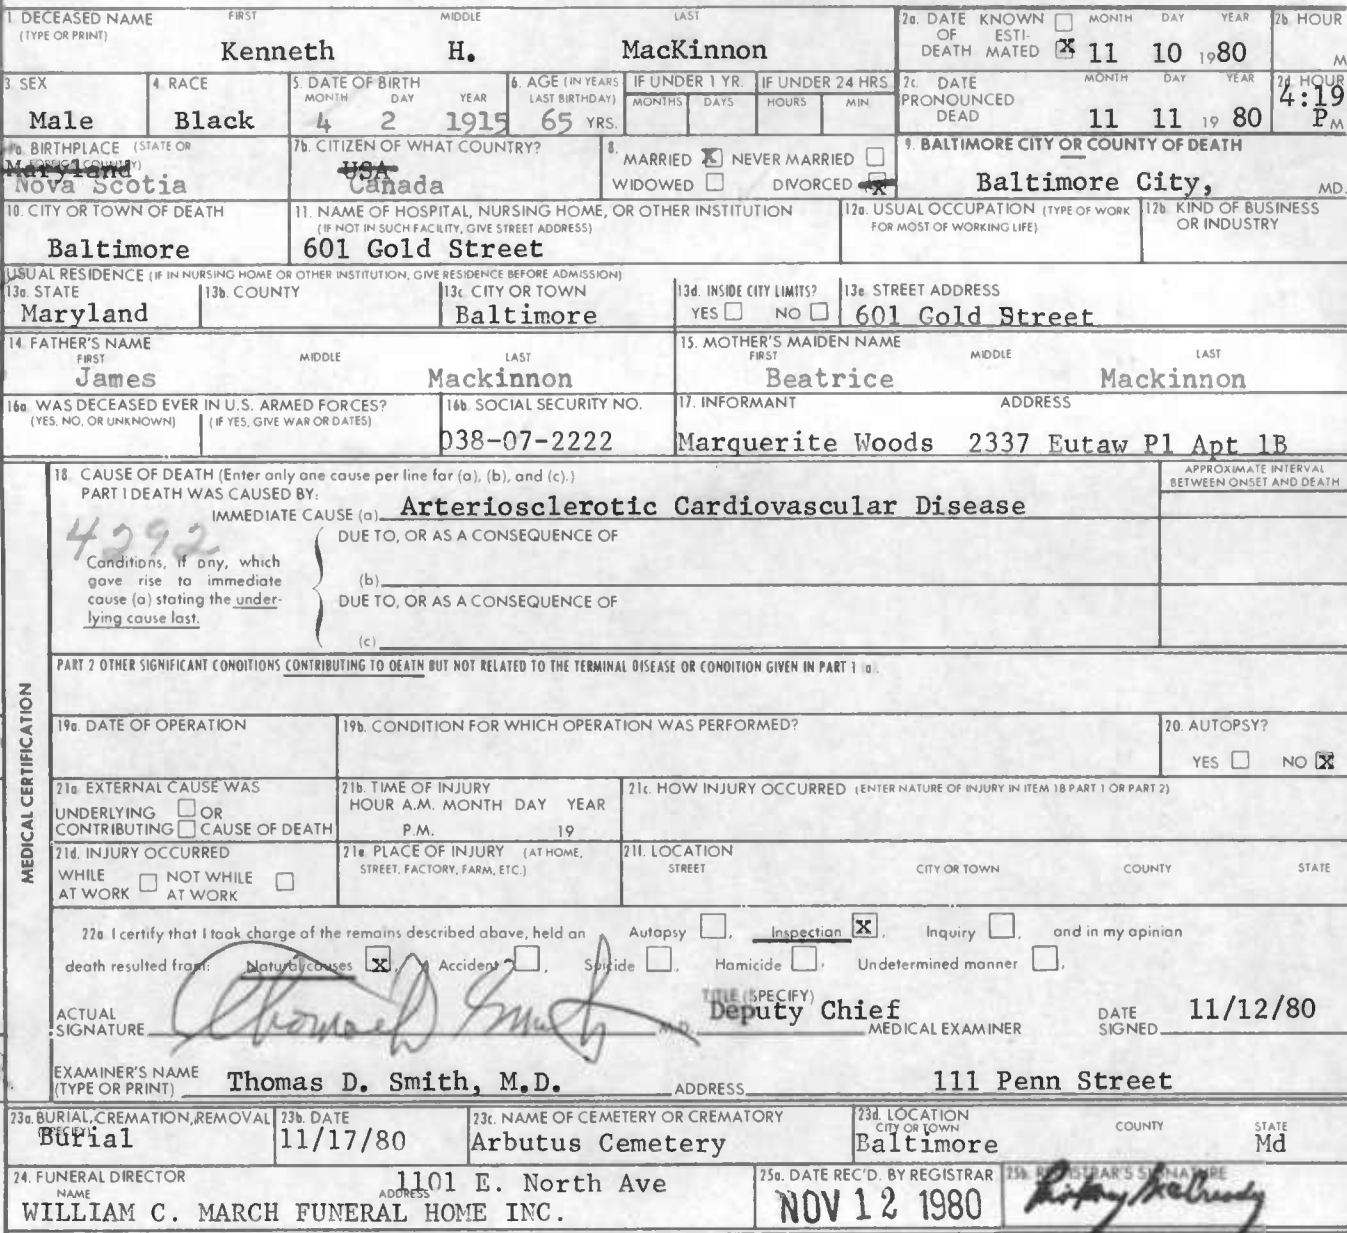 1 DECEASED NAME FIRST MIDDLE LAST
(TYPE OR PRINT)
Kenneth H. MacKinnon
2a. DATE KNOWN MONTH DAY YEAR
OF ESTI-
DEATH MATED X 11 10 1980
2b HOUR
M
3 SEX
Male
4. RACE
Black
5. DATE OF BIRTH
MONTH DAY YEAR
4 2 1915
6. AGE (IN YEARS
LAST BIRTHDAY)
65 YRS.
IF UNDER 1 YR.
MONTHS DAYS
IF UNDER 24 HRS
HOURS MIN.
2c. DATE MONTH DAY YEAR
PRONOUNCED
DEAD 11 11 19 80
2d. HOUR
4:19
PM
7a. BIRTHPLACE (STATE OR
FOREIGN COUNTRY)
Maryland
Nova Scotia
7b. CITIZEN OF WHAT COUNTRY?
USA
Canada
8.
MARRIED X NEVER MARRIED
WIDOWED DIVORCED X
9. BALTIMORE CITY OR COUNTY OF DEATH
Baltimore City, MD.
10. CITY OR TOWN OF DEATH
Baltimore
11. NAME OF HOSPITAL, NURSING HOME, OR OTHER INSTITUTION
(IF NOT IN SUCH FACILITY, GIVE STREET ADDRESS)
601 Gold Street
12a. USUAL OCCUPATION (TYPE OF WORK
FOR MOST OF WORKING LIFE)
12b. KIND OF BUSINESS
OR INDUSTRY
USUAL RESIDENCE (IF IN NURSING HOME OR OTHER INSTITUTION, GIVE RESIDENCE BEFORE ADMISSION)
13a. STATE
Maryland
13b. COUNTY
13c. CITY OR TOWN
Baltimore
13d. INSIDE CITY LIMITS?
YES NO
13e STREET ADDRESS
601 Gold Street
14 FATHER'S NAME
FIRST MIDDLE LAST
James Mackinnon
15. MOTHER'S MAIDEN NAME
FIRST MIDDLE LAST
Beatrice Mackinnon
16a WAS DECEASED EVER IN U.S. ARMED FORCES?
(YES, NO, OR UNKNOWN) (IF YES, GIVE WAR OR DATES)
16b. SOCIAL SECURITY NO.
038-07-2222
17. INFORMANT ADDRESS
Marguerite Woods 2337 Eutaw Pl Apt 1B
MEDICAL CERTIFICATION
18. CAUSE OF DEATH (Enter only one cause per line for (a), (b), and (c).)
PART I DEATH WAS CAUSED BY:
IMMEDIATE CAUSE (a) Arteriosclerotic Cardiovascular Disease
APPROXIMATE INTERVAL
BETWEEN ONSET AND DEATH
4292
DUE TO, OR AS A CONSEQUENCE OF
Conditions, if any, which
gave rise to immediate
cause (a) stating the under-
lying cause last.
(b)
DUE TO, OR AS A CONSEQUENCE OF
(c)
PART 2 OTHER SIGNIFICANT CONDITIONS CONTRIBUTING TO DEATH BUT NOT RELATED TO THE TERMINAL DISEASE OR CONDITION GIVEN IN PART 1 a.
19a. DATE OF OPERATION
19b. CONDITION FOR WHICH OPERATION WAS PERFORMED?
20. AUTOPSY?
YES NO X
21a. EXTERNAL CAUSE WAS
UNDERLYING OR
CONTRIBUTING CAUSE OF DEATH
21b. TIME OF INJURY
HOUR A.M. MONTH DAY YEAR
P.M. 19
21c. HOW INJURY OCCURRED (ENTER NATURE OF INJURY IN ITEM 18 PART 1 OR PART 2)
21d. INJURY OCCURRED
WHILE NOT WHILE
AT WORK AT WORK
21e. PLACE OF INJURY (AT HOME,
STREET, FACTORY, FARM, ETC.)
21f. LOCATION
STREET CITY OR TOWN COUNTY STATE
22a I certify that I took charge of the remains described above, held an Autopsy, Inspection X, Inquiry, and in my opinion
death resulted from: Natural causes X, Accident, Suicide, Homicide, Undetermined manner.
ACTUAL
SIGNATURE Thomas D Smith M.D.
TITLE (SPECIFY)
Deputy Chief MEDICAL EXAMINER
DATE
SIGNED 11/12/80
EXAMINER'S NAME
(TYPE OR PRINT) Thomas D. Smith, M.D. ADDRESS 111 Penn Street
23a. BURIAL, CREMATION, REMOVAL
(SPECIFY)
Burial
23b. DATE
11/17/80
23c. NAME OF CEMETERY OR CREMATORY
Arbutus Cemetery
23d. LOCATION
CITY OR TOWN COUNTY STATE
Baltimore Md
24. FUNERAL DIRECTOR
NAME ADDRESS 1101 E. North Ave
WILLIAM C. MARCH FUNERAL HOME INC.
25a. DATE REC'D. BY REGISTRAR
NOV 12 1980
25b. REGISTRAR'S SIGNATURE